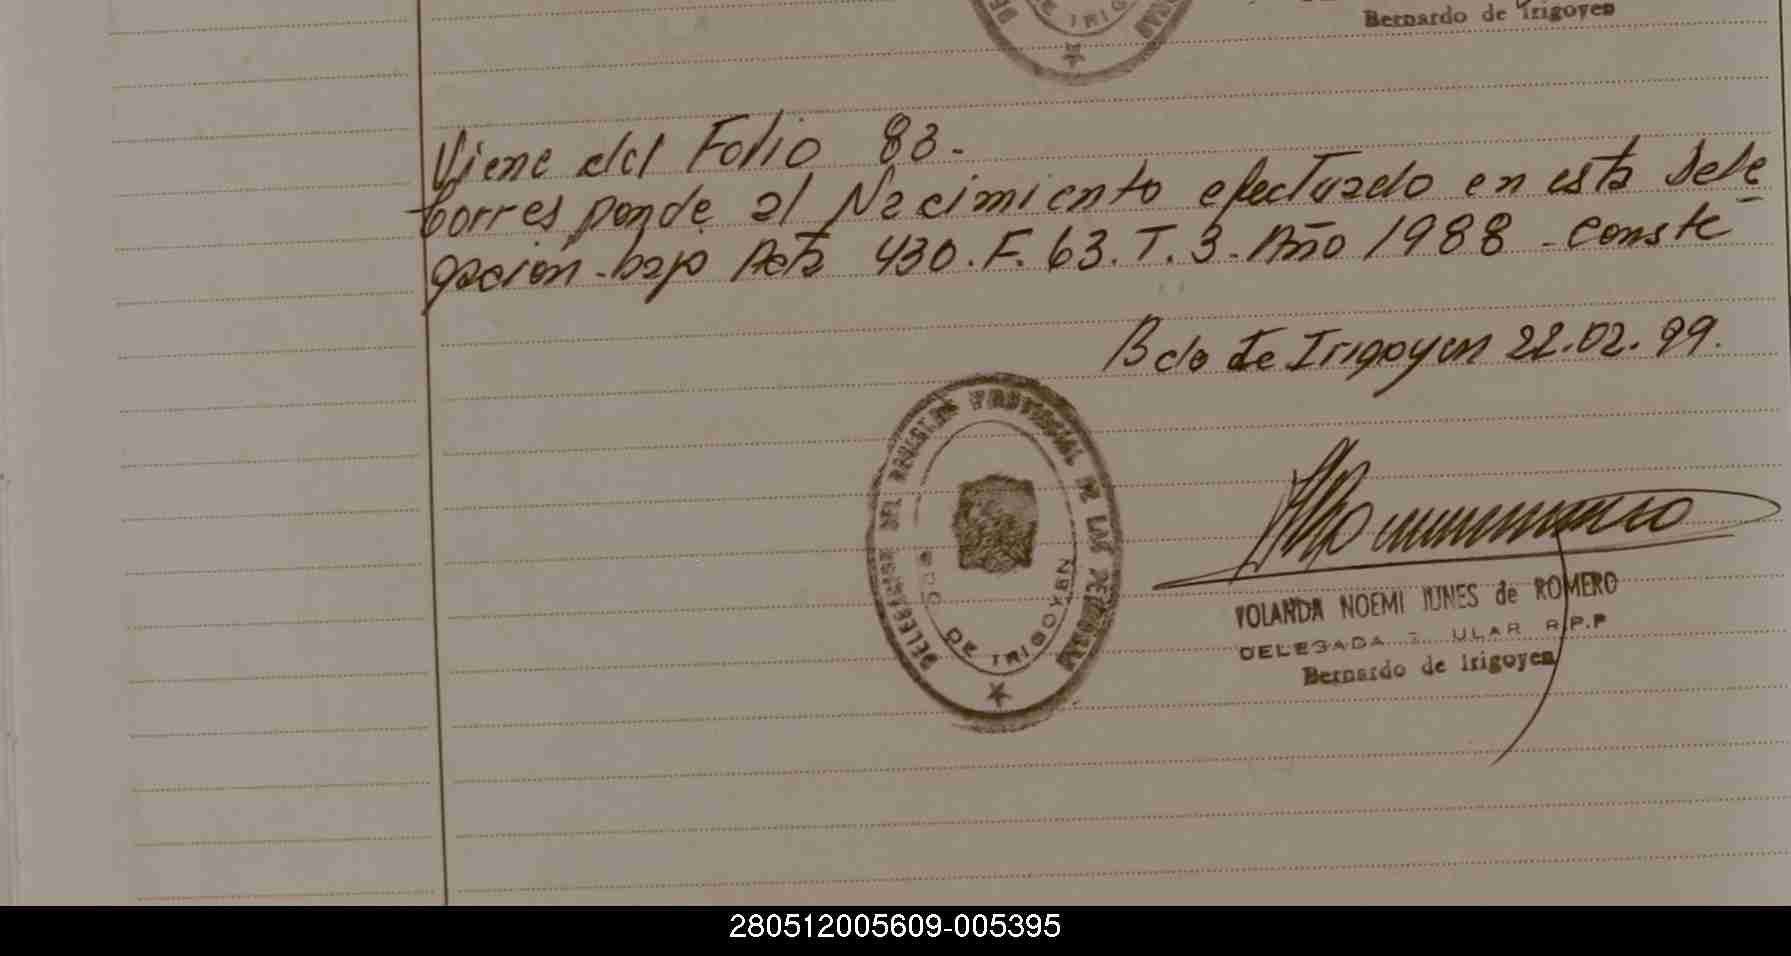 Bernardo de Irigoyen
DE IRIG
Viene del Folio 83.-
Corresponde al Nacimiento efectuado en esta Dele
gacion - bajo Acta 430. F. 63. T. 3. Año 1988 - Conste
Bdo de Irigoyen 22.02.99.
DELEGACION DEL REGISTRO PROVINCIAL DE LAS PERSONAS
BDO DE IRIGOYEN
YOLANDA NOEMI IUNES de ROMERO
DELEGADA ULAR R.P.P
Bernardo de Irigoyen
280512005609-005395